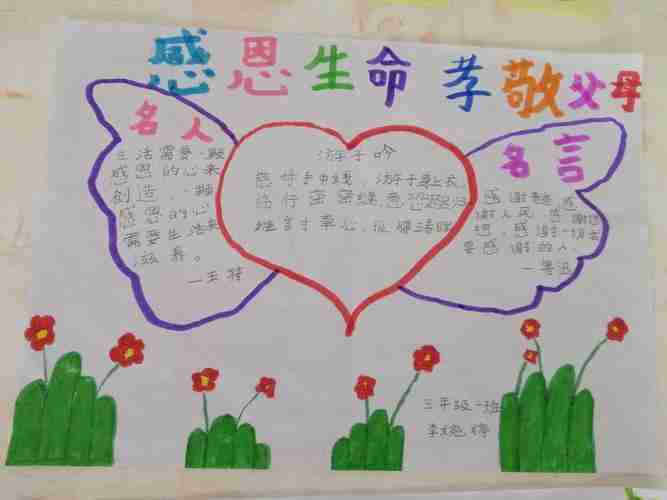 感恩生命 孝敬父母
名人
生活需要一颗
感恩的心来
创造，一颗
感恩的心
需要生活来
滋养。
—王符
游子吟
慈母手中线，游子身上衣
临行密密缝意恐迟迟归
谁言寸草心，报得三春晖
名言
感谢
谢人民，感谢
想，感谢一切
要感谢的人，
—鲁迅
三年级一班
李婉婷